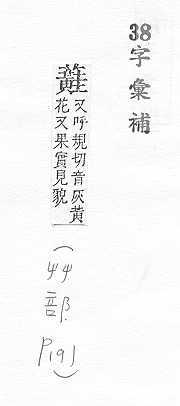 38字彙補
蘳
又呼規切音灰黃
花又果實見貌
(艸部 P191)